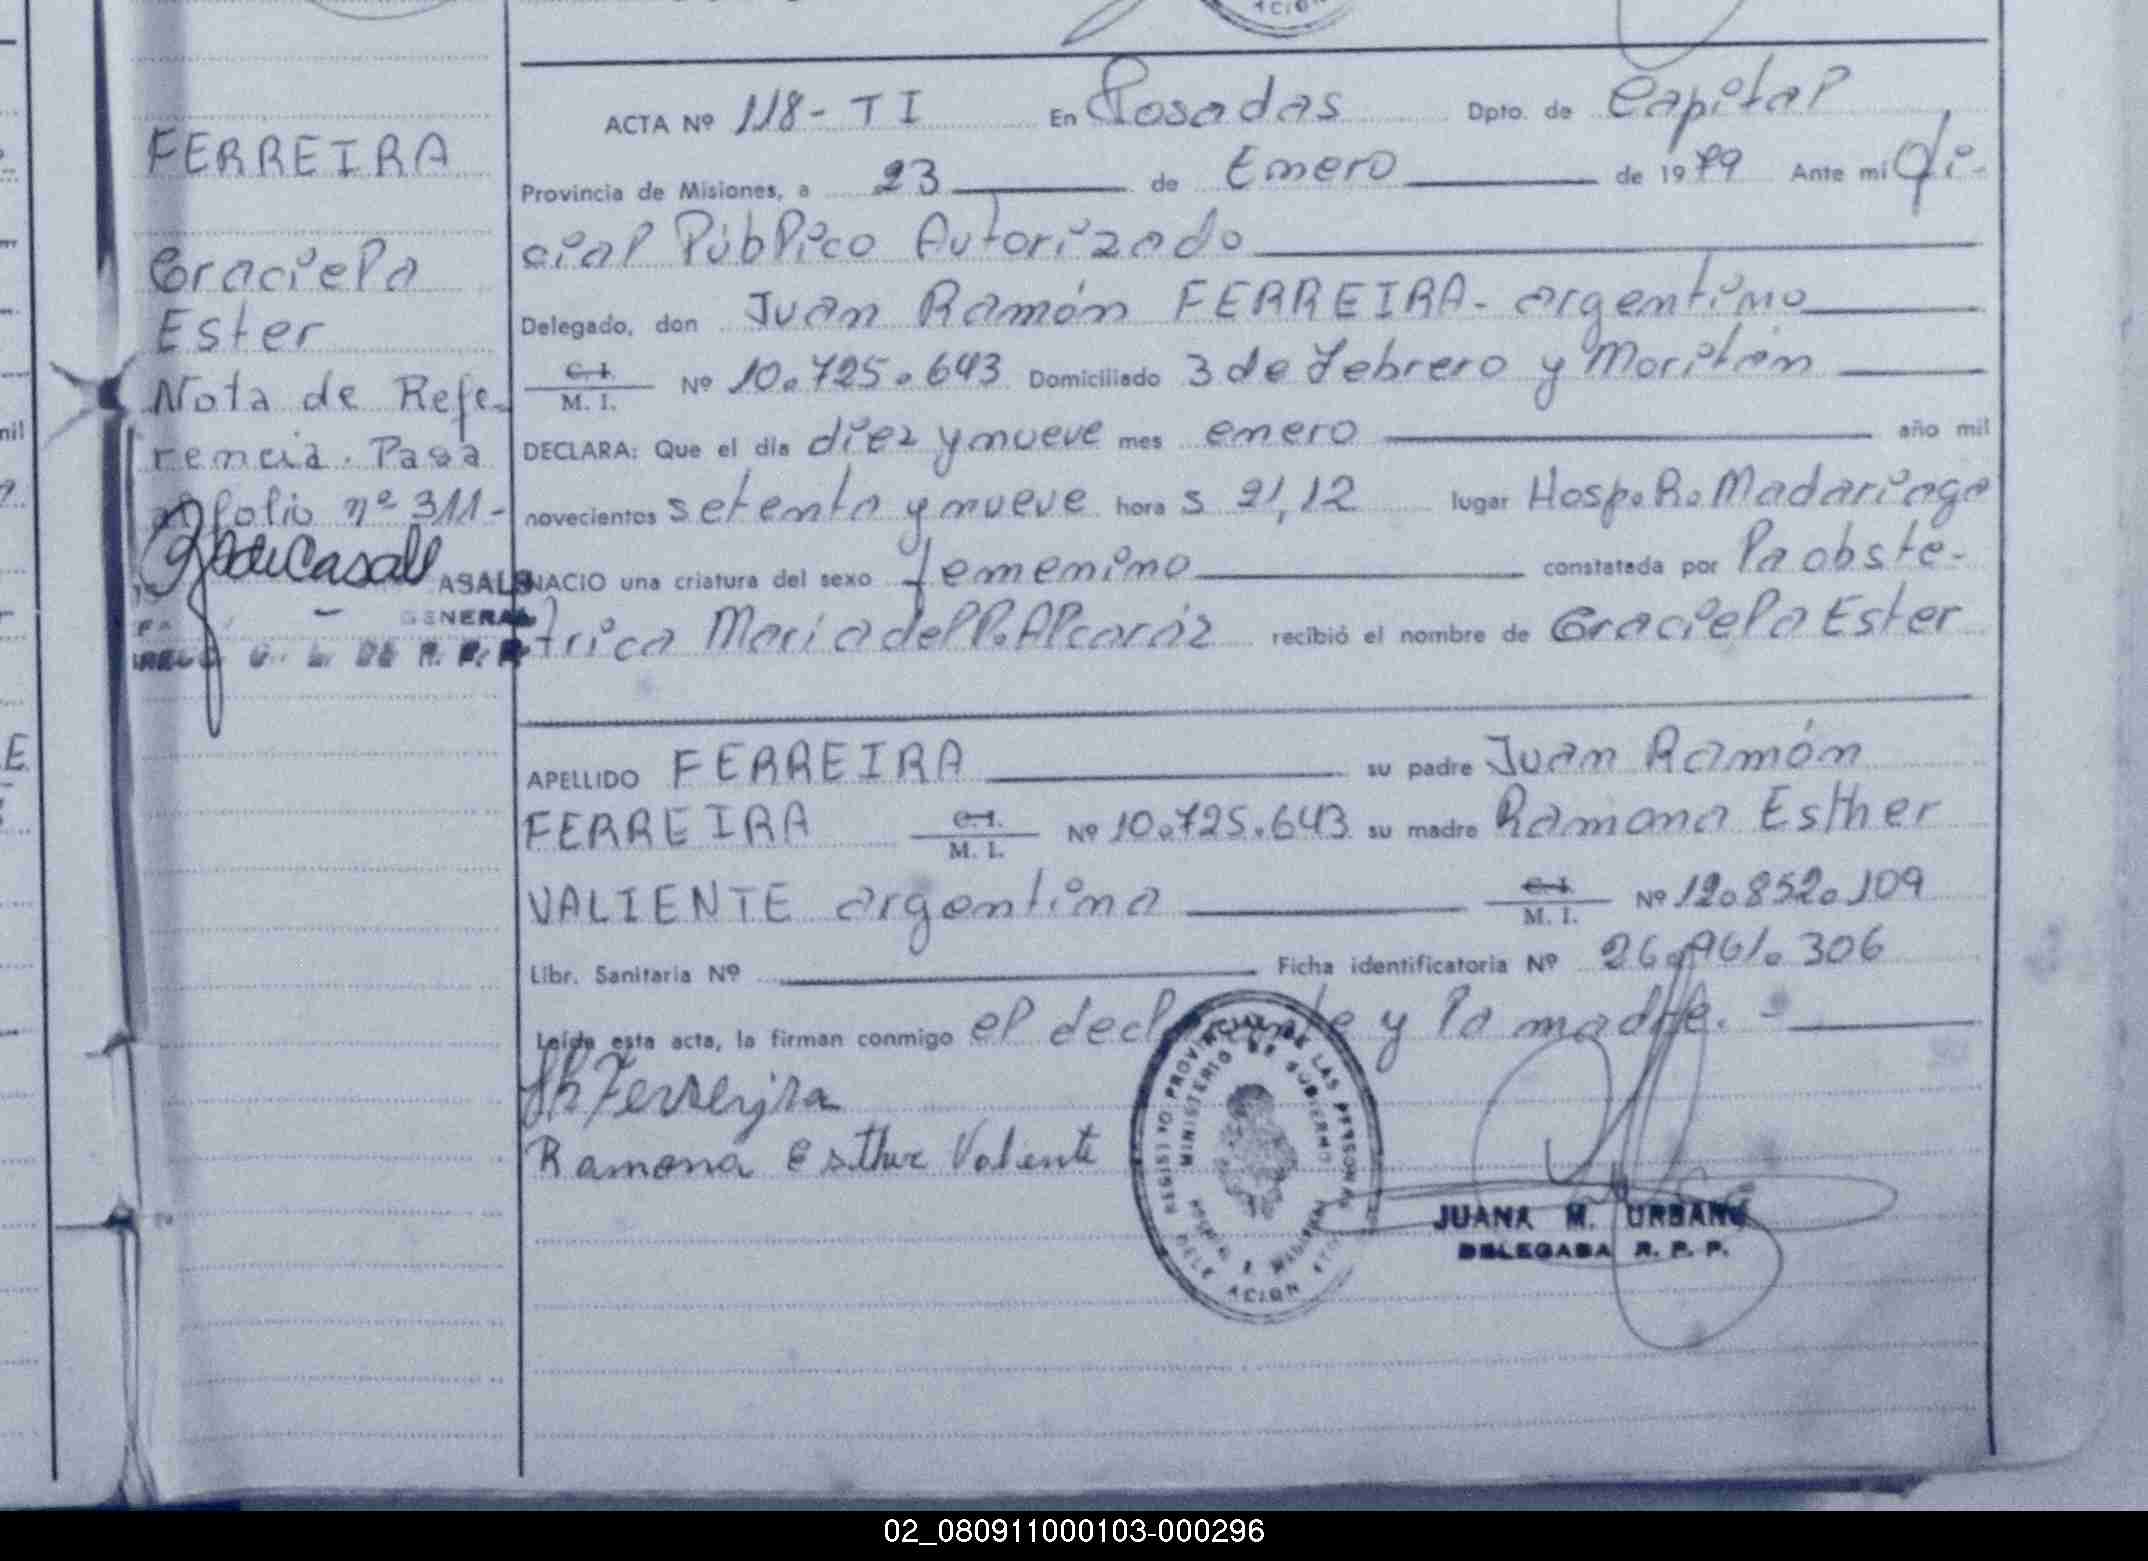 FERREIRA
Graciela
Ester
Nota de Refe-
rencia. Pasa
al folio nº 311-
ASALS
GENERAL
ACION
ACTA Nº 118- T I En Posadas Dpto. de Capital
Provincia de Misiones, a 23 de Enero de 1979 Ante mí Ofi-
cial Público Autorizado
Delegado, don Juan Ramón FERREIRA- argentino
C. I.
M. I. Nº 10.725.643 Domiciliado 3 de Febrero y Moritán
DECLARA: Que el día diez y nueve mes enero año mil
novecientos setenta y nueve hora s 21,12 lugar Hosp. R. Madariaga
NACIO una criatura del sexo femenino constatada por la obste-
trica Maria del P. Alcaráz recibió el nombre de Graciela Ester
APELLIDO FERREIRA su padre Juan Ramón
FERREIRA C. I. M. I. Nº 10.725.643 su madre Ramona Esther
VALIENTE argentina C. I. M. I. Nº 12.852.109
Libr. Sanitaria Nº Ficha identificatoria Nº 26.961.306
Leída esta acta, la firman conmigo el declarante y la madre.
Ferreyra
Ramona Esther Valiente
REGISTRO PROVINCIAL DE LAS PERSONAS
MINISTERIO DE GOBIERNO
JUANA M. URBANO
DELEGADA R. P. P.
02_080911000103-000296